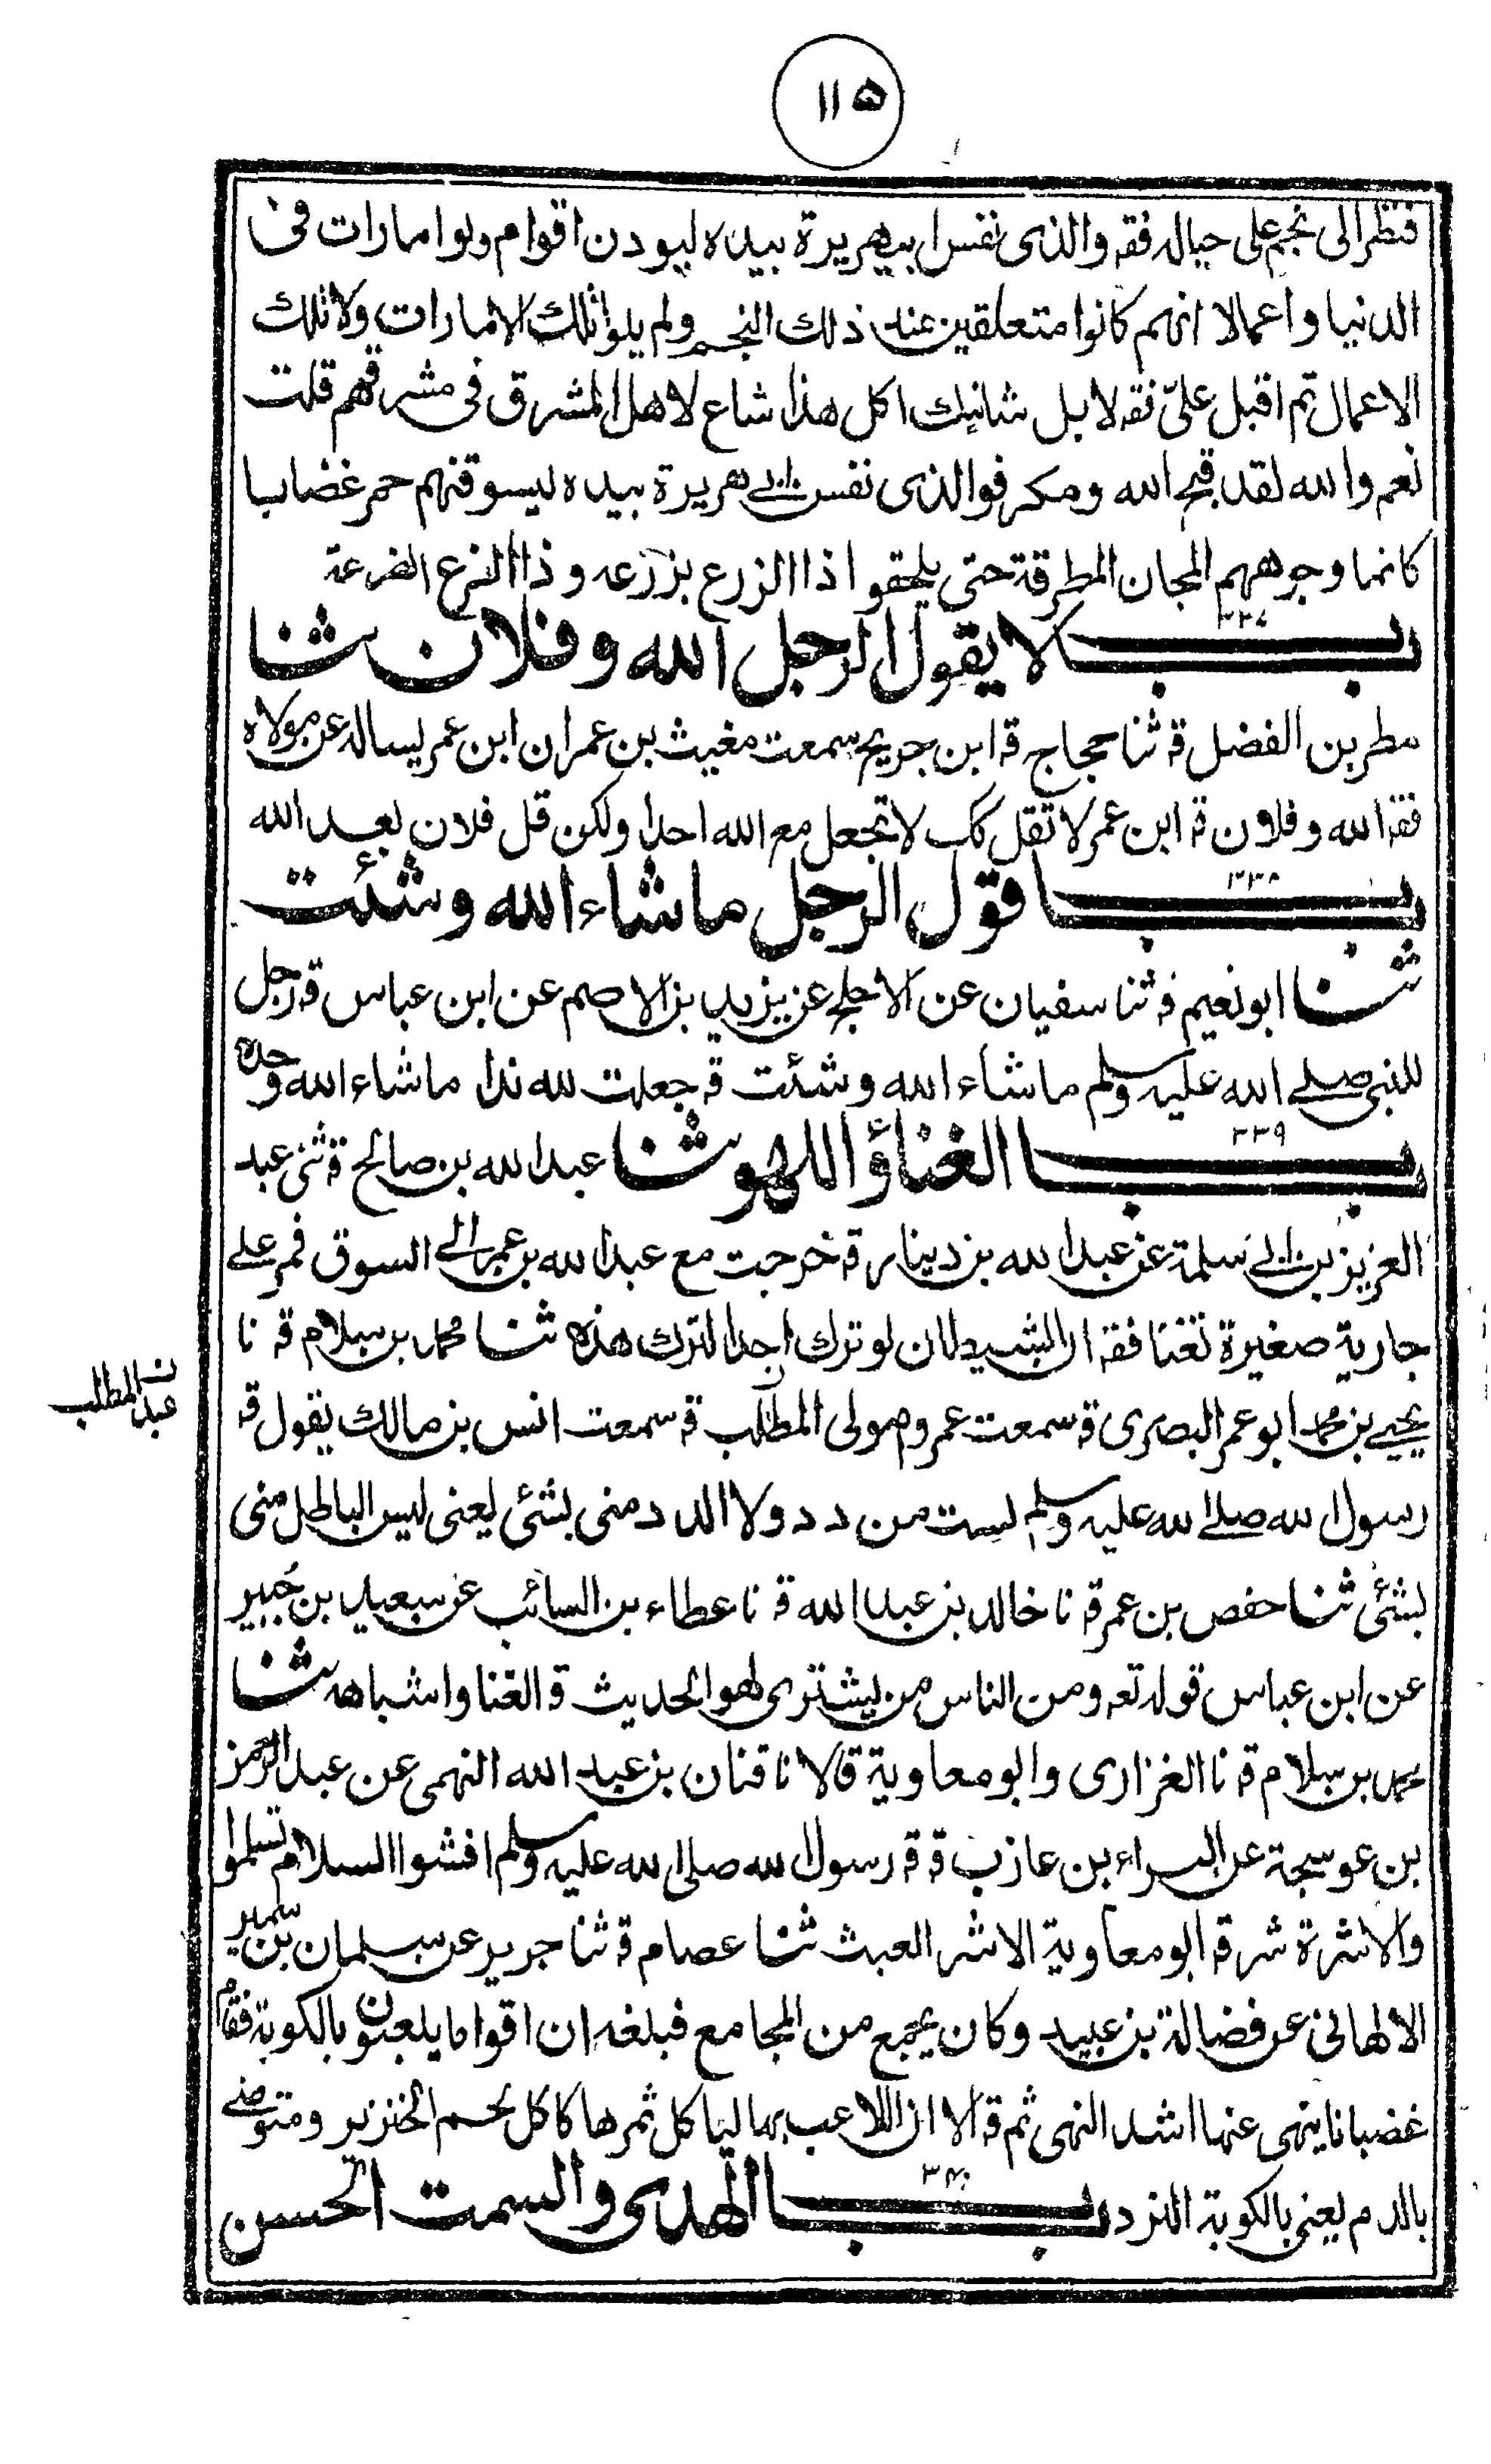 ١١٥
فنظر الى نجم على حياله فقه والذى نفس ابيهريرة بيده ليودن اقوام ولوا امارات فى
الدنيا واعمالا انهم كانوا متعلقين عند ذلك النجم ولم يلوا تلك الامارات ولا تلك
الاعمال ثم اقبل علىّ فقه لا بل شانيك اكل هذا شاع لاهل المشرق فى مشرقهم قلت
نعم والله لقد قبح الله ومكر فوالذى نفس ابى هريرة بيده ليسوقنهم حمر غضابا
كانما وجوههم المجان المطرقة حتى يلحقوا ذا الزرع بزرعه وذا الضرع الضرعة
باب ٣٣٧ لا يقول الرجل الله وفلان ثنا
مطر بن الفضل قه ثنا حجاج قه ابن جريج سمعت مغيث بن عمران ابن عمر يساله عن مولاه
فقه الله وفلان قه ابن عمر لا تقل كك لا تجعل مع الله احدا ولكن قل فلان بعد الله
باب ٣٣٨ قول الرجل ما شاء الله وشئت
ثنا ابو نعيم قه ثنا سفيان عن الاجلح عن يزيد بن الاصم عن ابن عباس قه رجل
للنبى صلى الله عليه وسلم ما شاء الله وشئت قه جعلت لله ندا ما شاء الله وحده
باب ٣٣٩ الغناؤ اللهو ثنا عبد الله بن صالح قه ثنى عبد
العزيز بن ابى سلمة عن عبد الله بن دينار قه خرجت مع عبد الله بن عمر الى السوق فمر على
جارية صغيرة تغنا فقه ان الشيطان لو ترك احدا لترك هذه ثنا محمد بن سلام قه نا
يحيى بن محمد ابو عمر البصرى قه سمعت عمروم مولى المطلب قه سمعت انس بن مالك يقول قه
ن عبد المطلب
رسول الله صلى الله عليه وسلم لست من دد ولا الدد منى بشئ يعنى ليس الباطل منى
بشئ ثنا حفص بن عمر قه نا خالد بن عبد الله قه نا عطاء بن السائب عن سعيد بن جُبير
عن ابن عباس قوله تعه ومن الناس من يشترى لهو الحديث قه الغنا واشباهه ثنا
محمد بن سلام قه نا الفزارى وابو معاوية قالا نا قنان بن عبد الله النهمى عن عبد الرحمن
بن عوسجة عن البراء بن عازب قه قه رسول الله صلى الله عليه وسلم افشوا السلام تسلموا
والاشرة شر قه ابو معاوية الاشر العبث ثنا عصام قه ثنا حرير عن سلمان بن سمير
الالهانى عن فضالة بن عبيد وكان يجمع من المجامع فبلغه ان اقواما يلعبون بالكوبة فقام
غضبانا ينهى عنها اشد النهى ثم قه الا ان اللاعب بها لياكل ثمرها كاكل لحم الخنزير ومتوضئ
بالدم يعنى بالكوبة النرد باب ٣٤٠ الهدى والسمت الحسن